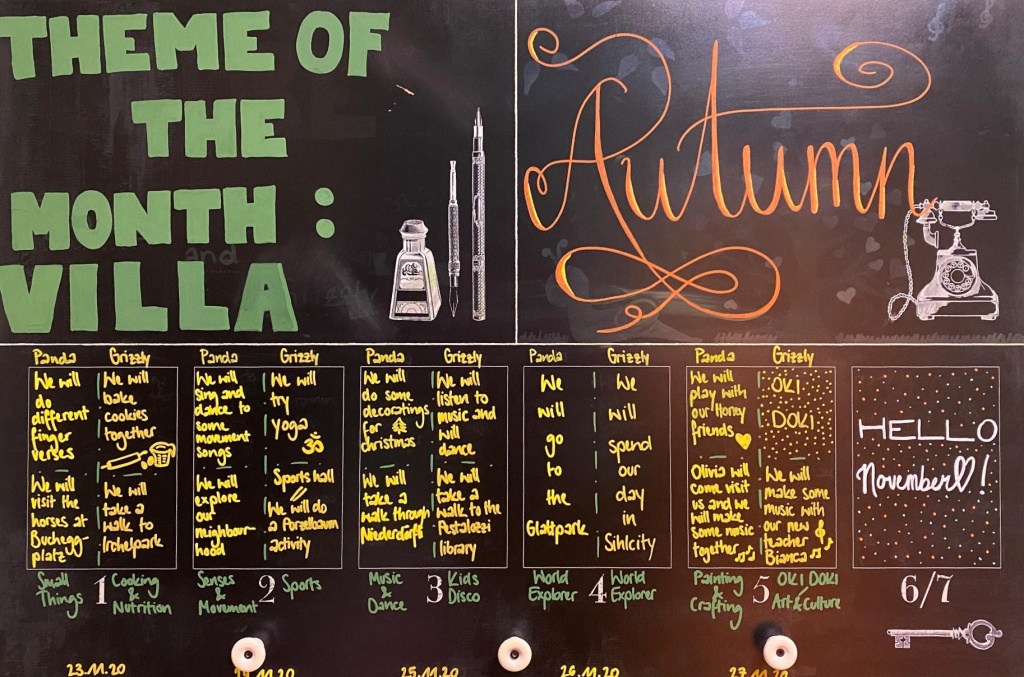 THEME OF
THE
MONTH :
VILLA
and
Autumn
Panda
We will
do
different
finger
verses
We will
visit the
horses at
Buchegg-
platz
Grizzly
We will
bake
cookies
together
We will
take a
walk to
Irchelpark
Small
Things
1
Cooking
&
Nutrition
Panda
We will
sing and
dance to
some
movement
songs
We will
explore
our
neighbour-
hood
Grizzly
We will
try
yoga
ॐ
Sports hall
We will do
a Porzelbaum
activity
Senses
&
Movement
2
Sports
Panda
We will
do some
decoratings
for
christmas
We will
take a
walk through
Niederdörfli
Grizzly
We will
listen to
music and
will
dance
We will
take a
walk to the
Pestalozzi
library
Music
&
Dance
3
Kids
Disco
Panda
We
will
go
to
the
Glattpark
Grizzly
We
will
spend
our
day
in
Sihlcity
World
Explorer
4
World
Explorer
Panda
We will
play with
our Honey
friends
Olivia will
come visit
us and we
will make
some music
together
Grizzly
OKI
DOKI
We will
make some
music with
our new
teacher
Bianca
Painting
&
Crafting
5
OKI DOKI
Art & Culture
HELLO
November!
6/7
23.11.20
24.11.20
25.11.20
26.11.20
27.11.20